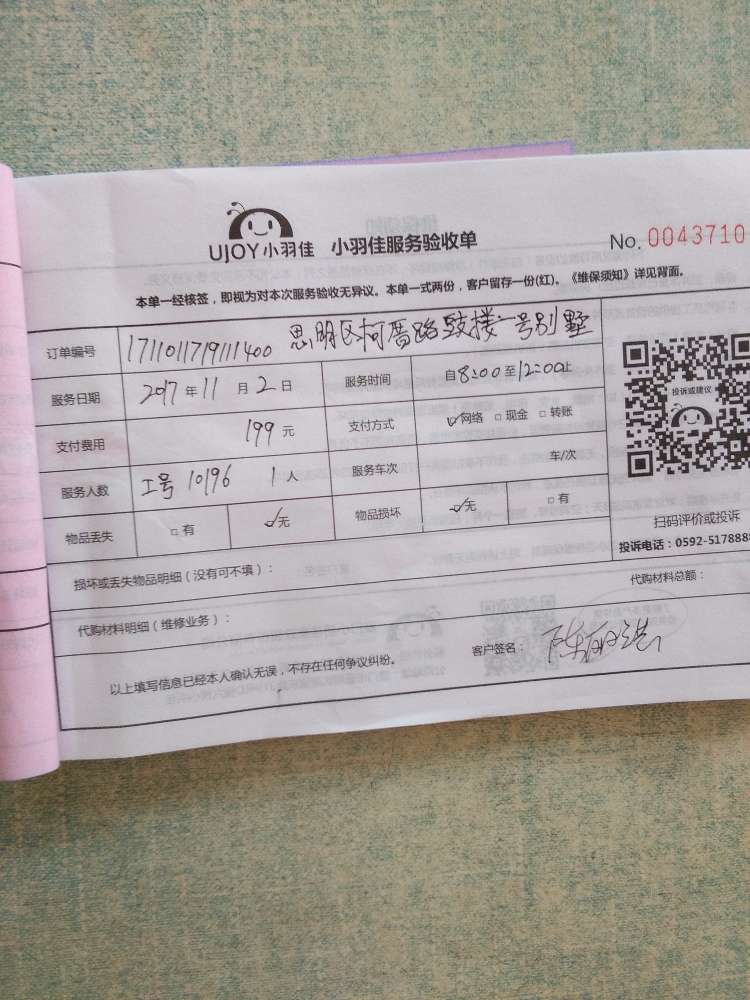 UJOY小羽佳 小羽佳服务验收单 No. 0043710
本单一经核签，即视为对本次服务验收无异议。本单一式两份，客户留存一份(红)。《维保须知》详见背面。
订单编号 1711011719111400 思明区柯厝路鼓楼一号别墅
服务日期 2017 年 11 月 2 日 服务时间 自8:00至12:00止
投诉或建议
支付费用 199 元 支付方式 ☑网络 □现金 □转账
服务人数 工号 10196 1 人 服务车次 车/次
物品丢失 □有 ☑无 物品损坏 ☑无 □有
扫码评价或投诉
投诉电话：0592-5178888
损坏或丢失物品明细（没有可不填）：
代购材料总额：
代购材料明细（维修业务）：
以上填写信息已经本人确认无误，不存在任何争议纠纷。 客户签名：